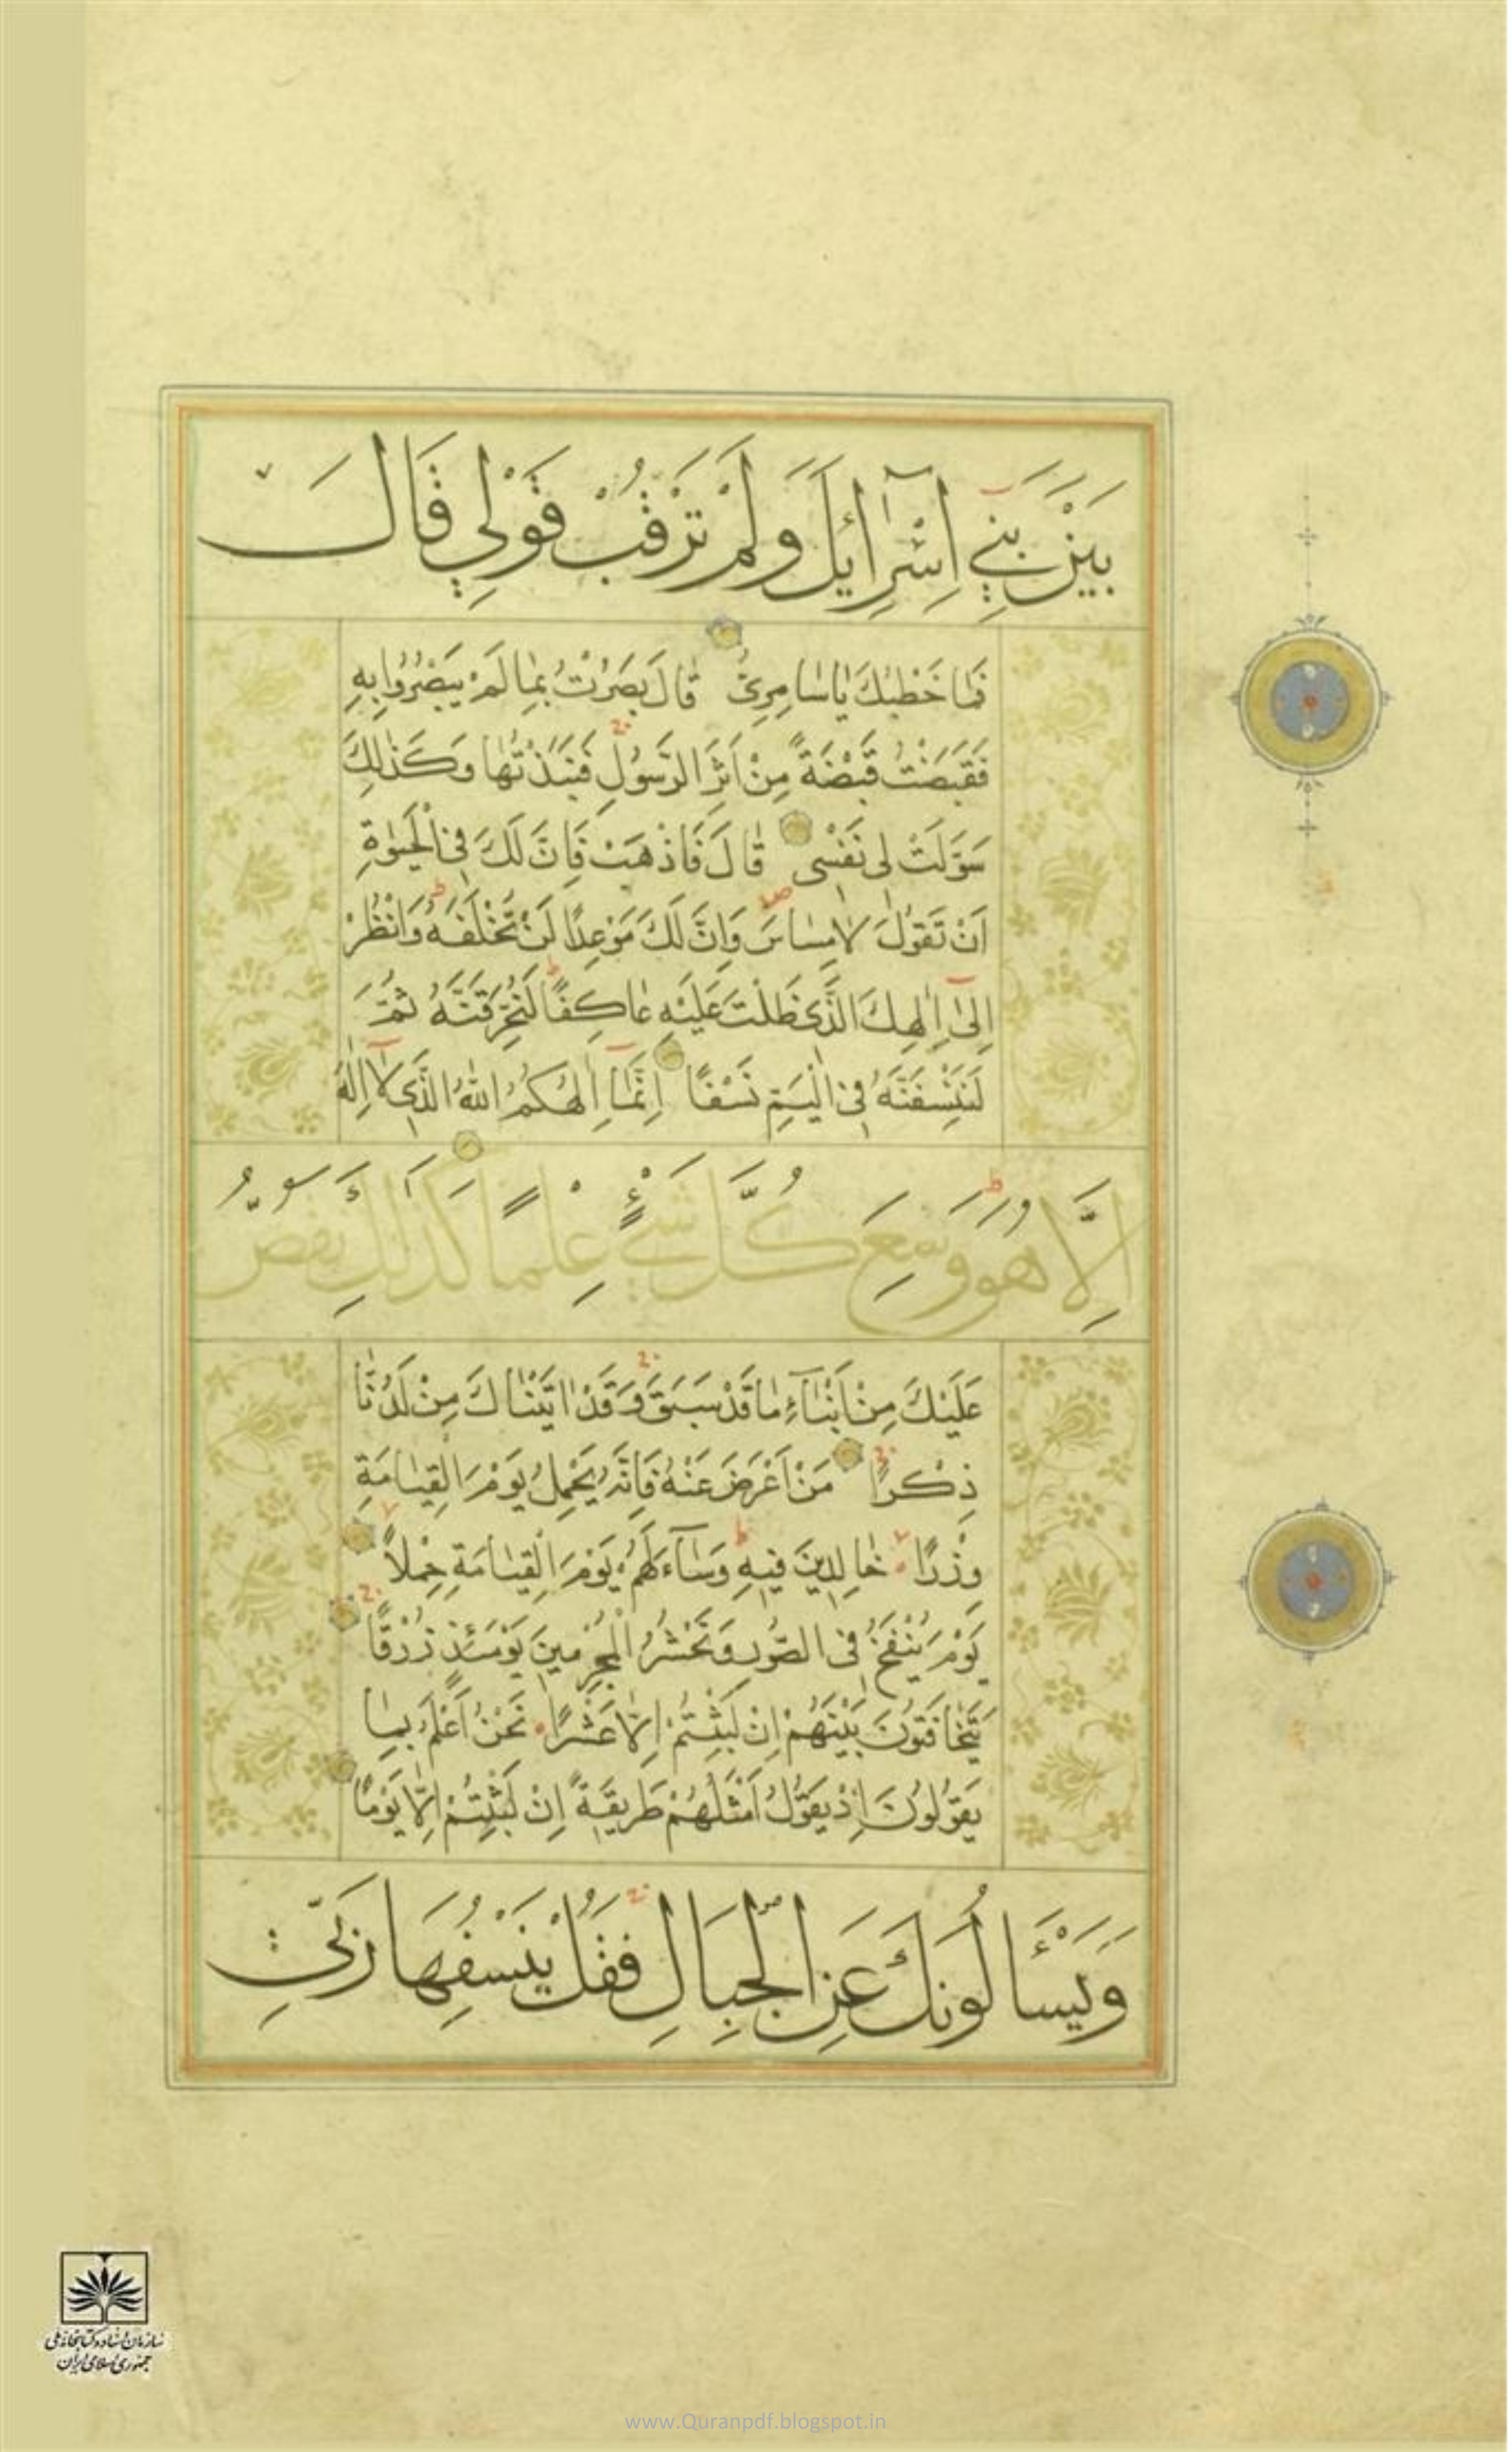 بَيْنَ بَنِي اِسْرَآئِلَ وَلَمْ تَرْقُبْ قَوْلِي قَالَ
فَمَا خَطْبُكَ يَاسَامِرِيُّ قَالَ بَصُرْتُ بِمَا لَمْ يَبْصُرُوا بِهِ
فَقَبَضْتُ قَبْضَةً مِنْ اَثَرِ الرَّسُولِ فَنَبَذْتُهَا وَكَذٰلِكَ
سَوَّلَتْ لِى نَفْسِى قَالَ فَاذْهَبْ فَاِنَّ لَكَ فِى الْحَيٰوةِ
اَنْ تَقُولَ لَا مِسَاسَ وَاِنَّ لَكَ مَوْعِدًا لَنْ تُخْلَفَهُ وَانْظُرْ
اِلٰىٓ اِلٰهِكَ الَّذِى ظَلْتَ عَلَيْهِ عَاكِفًا لَنُحَرِّقَنَّهُ ثُمَّ
لَنَنْسِفَنَّهُ فِى الْيَمِّ نَسْفًا اِنَّمَآ اِلٰهُكُمُ اللّٰهُ الَّذِى لَآ اِلٰهَ
اِلَّا هُوَ وَسِعَ كُلَّ شَيْءٍ عِلْمًا كَذٰلِكَ نَقُصُّ
عَلَيْكَ مِنْ اَنْبَآءِ مَا قَدْ سَبَقَ وَقَدْ اٰتَيْنَاكَ مِنْ لَدُنَّا
ذِكْرًا مَنْ اَعْرَضَ عَنْهُ فَاِنَّهُ يَحْمِلُ يَوْمَ الْقِيَامَةِ
وِزْرًا خَالِدِينَ فِيهِ وَسَآءَ لَهُمْ يَوْمَ الْقِيَامَةِ حِمْلًا
يَوْمَ يُنْفَخُ فِى الصُّورِ وَنَحْشُرُ الْمُجْرِمِينَ يَوْمَئِذٍ زُرْقًا
يَتَخَافَتُونَ بَيْنَهُمْ اِنْ لَبِثْتُمْ اِلَّا عَشْرًا نَحْنُ اَعْلَمُ بِمَا
يَقُولُونَ اِذْ يَقُولُ اَمْثَلُهُمْ طَرِيقَةً اِنْ لَبِثْتُمْ اِلَّا يَوْمًا
وَيَسْـَٔالُونَكَ عَنِ الْجِبَالِ فَقُلْ يَنْسِفُهَا رَبِّي
سازمان اسناد و کتابخانه ملی
جمهوری اسلامی ایران
www.Quranpdf.blogspot.in